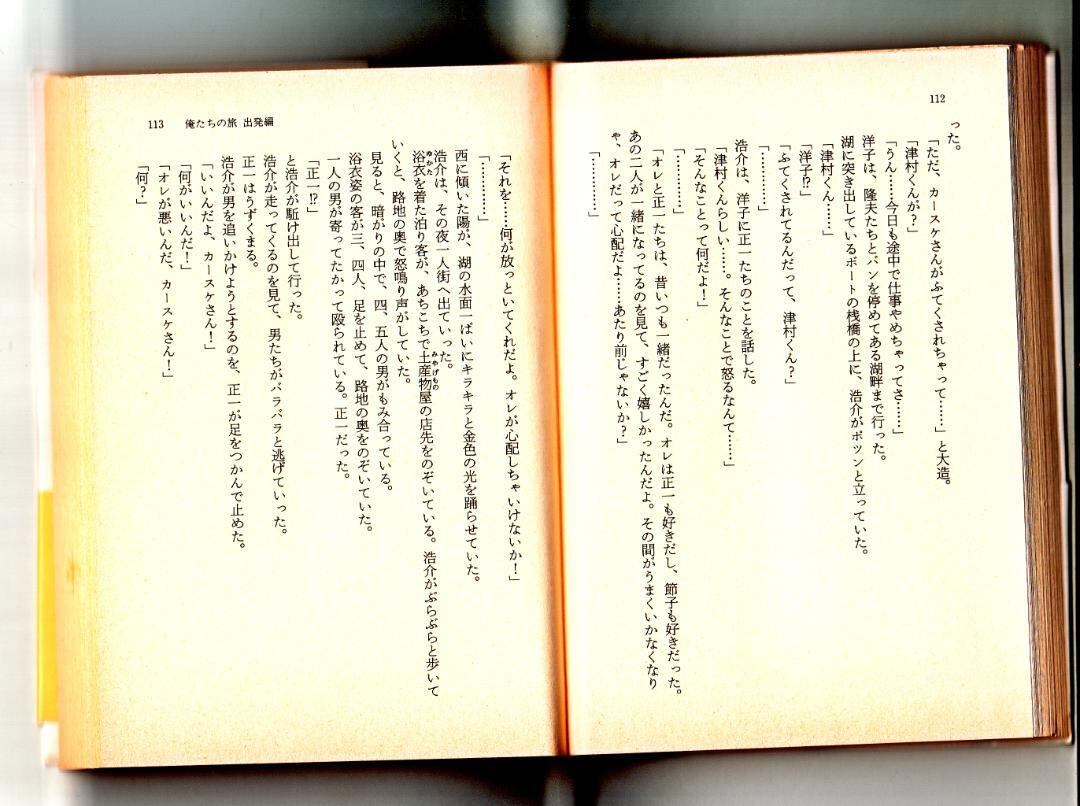 112
った。
「ただ、カースケさんがふてくされちゃって……」と大造。
「津村くんが？」
「うん……今日も途中で仕事やめちゃってさ……」
洋子は、隆夫たちとバンを停めてある湖畔まで行った。
湖に突き出しているボートの桟橋の上に、浩介がポツンと立っていた。
「津村くん……」
「洋子!?」
「ふてくされてるんだって、津村くん？」
「…………」
浩介は、洋子に正一たちのことを話した。
「津村くんらしい……。そんなことで怒るなんて……」
「そんなことって何だよ！」
「…………」
「オレと正一たちは、昔いつも一緒だったんだ。オレは正一も好きだし、節子も好きだった。
あの二人が一緒になってるのを見て、すごく嬉しかったんだよ。その間がうまくいかなくなり
ゃ、オレだって心配だよ……あたり前じゃないか？」
「…………」
113 俺たちの旅 出発編
「それを……何が放っといてくれだよ。オレが心配しちゃいけないか！」
「…………」
西に傾いた陽が、湖の水面一ぱいにキラキラと金色の光を踊らせていた。
浩介は、その夜一人街へ出ていった。
浴衣を着た泊り客が、あちこちで土産物屋の店先をのぞいている。浩介がぶらぶらと歩いて
いくと、路地の奥で怒鳴り声がしていた。
見ると、暗がりの中で、四、五人の男がもみ合っている。
浴衣姿の客が三、四人、足を止めて、路地の奥をのぞいていた。
一人の男が寄ってたかって殴られている。正一だった。
「正一!?」
と浩介が駈け出して行った。
浩介が走ってくるのを見て、男たちがバラバラと逃げていった。
正一はうずくまる。
浩介が男を追いかけようとするのを、正一が足をつかんで止めた。
「いいんだよ、カースケさん！」
「何がいいんだ！」
「オレが悪いんだ、カースケさん！」
「何？」